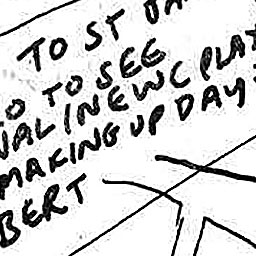 TO ST DA
O TO SEE
NAL IN EWC PLAY
MAKING UP DAY
BERT